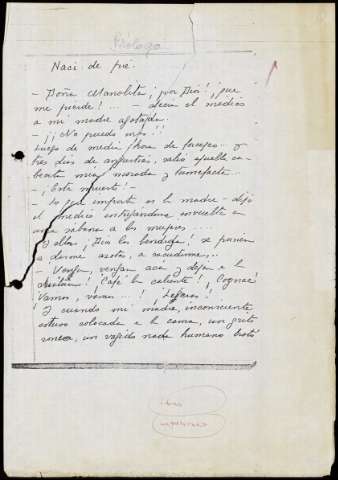 Prólogo
Nací de pie.
- ¡Doña Manolita, ¡por Dios!, que
me pierde! ... - decía el médico
a mi madre agotada.
- ¡¡No puedo más!!
Luego de media hora de forceps y
tres días de angustias, salió aquella ca-
becita muy morada y tumefacta...
- ¡Está muerto!
- Lo que importa es la madre - dijo
el médico entregándome envuelto en
una sábana a las mujeres....
Y ellas, Dios las bendiga! se pusieron
a darme azotes, a sacudirme...
- Vengan, vengan acá y dejen a la
¡Café bien caliente! ¡Cognac!
Vamos, vamos ...!
Y cuando mi madre, inconsciente
estuvo colocada en la cama, un grito
ronco, un vagido nada humano brotó